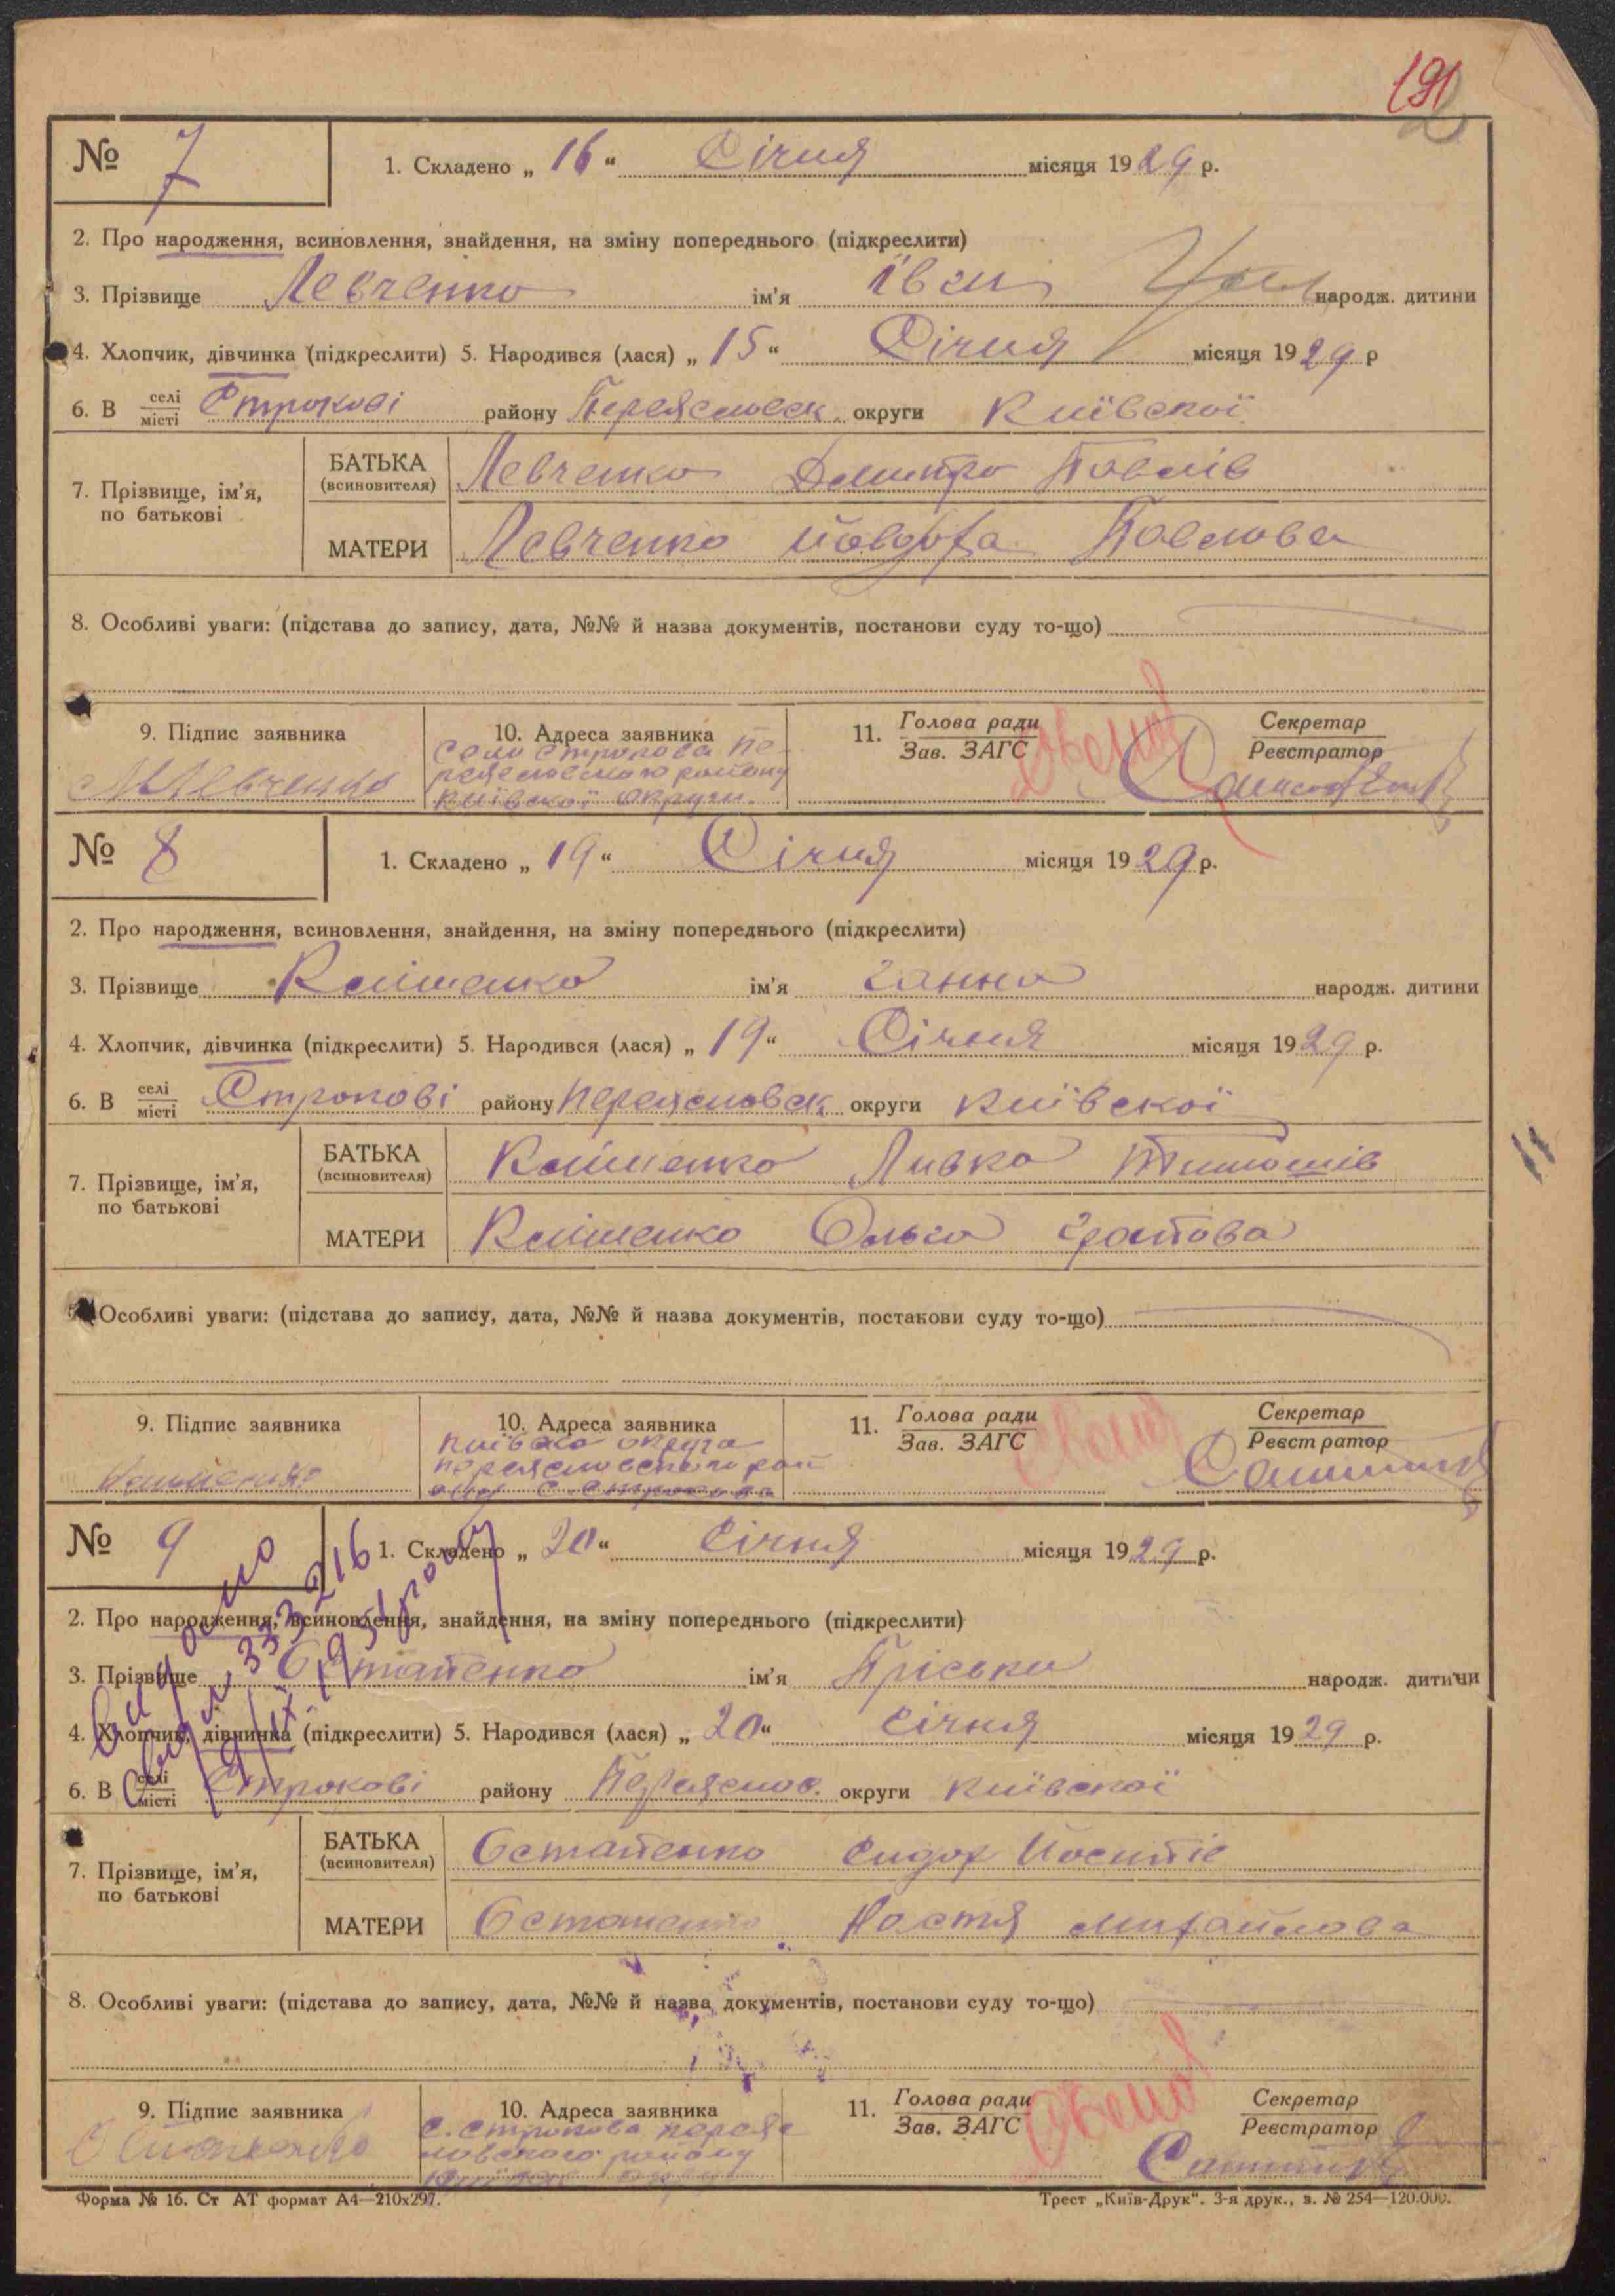 191
№ 7
1. Складено „ 16 “ Січня місяця 1929 р.
2. Про народження, всиновлення, знайдення, на зміну попереднього (підкреслити)
3. Прізвище Левченко ім'я Іван народж. дитини
4. Хлопчик, дівчинка (підкреслити) 5. Народився (лася) „ 15 “ Січня місяця 1929 р
6. В селі місті Строкові району Переяславск. округи Київскої
7. Прізвище, ім'я, по батькові
БАТЬКА (всиновителя) Левченко Дмитро Павлів
МАТЕРИ Левченко Павлова
8. Особливі уваги: (підстава до запису, дата, №№ й назва документів, постанови суду то-що)
9. Підпис заявника
10. Адреса заявника
11. Голова ради Зав. ЗАГС
Секретар Реєстратор
Левченко
село Строкова Пе-
реяславского району
Київскої округи.
№ 8
1. Складено „ 19 “ Січня місяця 1929 р.
2. Про народження, всиновлення, знайдення, на зміну попереднього (підкреслити)
3. Прізвище Клименко ім'я Ганна народж. дитини
4. Хлопчик, дівчинка (підкреслити) 5. Народився (лася) „ 19 “ Січня місяця 1929 р.
6. В селі місті Строкові району Переяславск округи Київскої
7. Прізвище, ім'я, по батькові
БАТЬКА (всиновителя) Клименко Тимошів
МАТЕРИ Клименко Ольга
Особливі уваги: (підстава до запису, дата, №№ й назва документів, постанови суду то-що)
9. Підпис заявника
10. Адреса заявника
11. Голова ради Зав. ЗАГС
Секретар Реєстратор
Клименко
округа
с. Строкова
№ 9
1. Складено „ 20 “ Січня місяця 1929 р.
2. Про народження, всиновлення, знайдення, на зміну попереднього (підкреслити)
3. Прізвище Остапенко ім'я Пріська народж. дитини
4. Хлопчик, дівчинка (підкреслити) 5. Народився (лася) „ 20 “ Січня місяця 1929 р.
6. В селі місті Строкові району Переяслов. округи Київскої
7. Прізвище, ім'я, по батькові
БАТЬКА (всиновителя) Остапенко Сидор Йосипів
МАТЕРИ Остапенко Настя Михайлова
8. Особливі уваги: (підстава до запису, дата, №№ й назва документів, постанови суду то-що)
9. Підпис заявника
10. Адреса заявника
11. Голова ради Зав. ЗАГС
Секретар Реєстратор
с. Строкова Переяс
ловского району
Форма № 16. Ст АТ формат А4—210х297.
Трест „Київ-Друк“. 3-я друк., з. № 254—120.000.